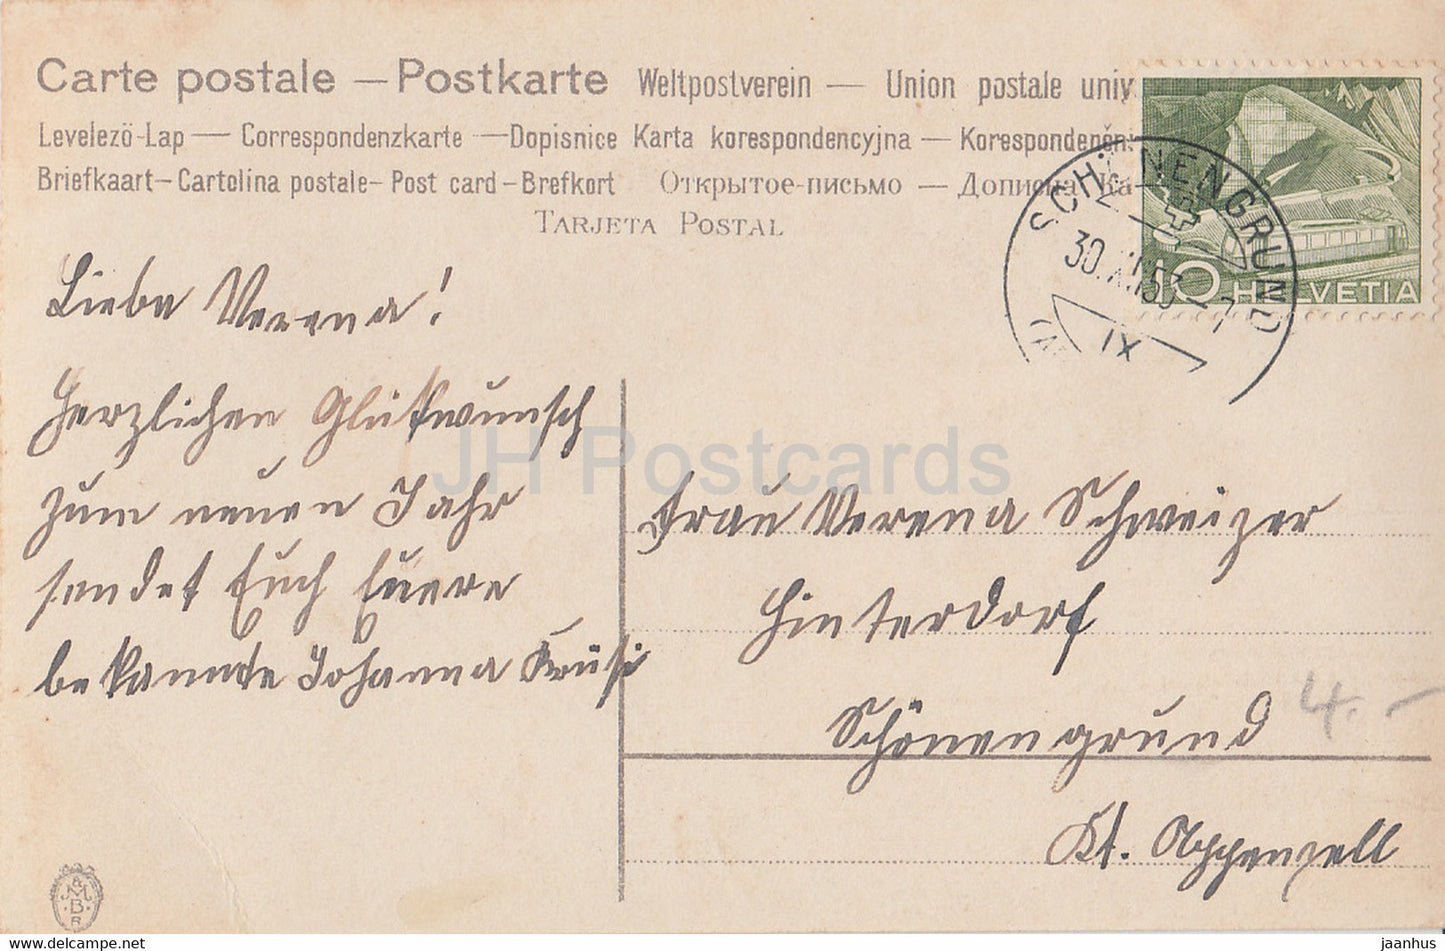 Carte postale — Postkarte Weltpostverein — Union postale univ
Levelező-Lap — Correspondenzkarte — Dopisnice Karta korespondencyjna — Korespondenčn
Briefkaart – Cartolina postale – Post card – Brefkort Открытое-письмо — Дописна Ка
TARJETA POSTAL
SCHÖNENGRUND
30.XII.53 – 7
IX
10 HELVETIA
Liebe Verena!
Herzlichen Glükwunsch
zum neuen Jahr
sendet Euch Euere
bekannte Johanna Krüsi
JH Postcards
Frau Verena Schweizer
Hinterdorf
Schönengrund
4.-
Kt. Appenzell
& M
B
R
www.delcampe.net
jaanhus